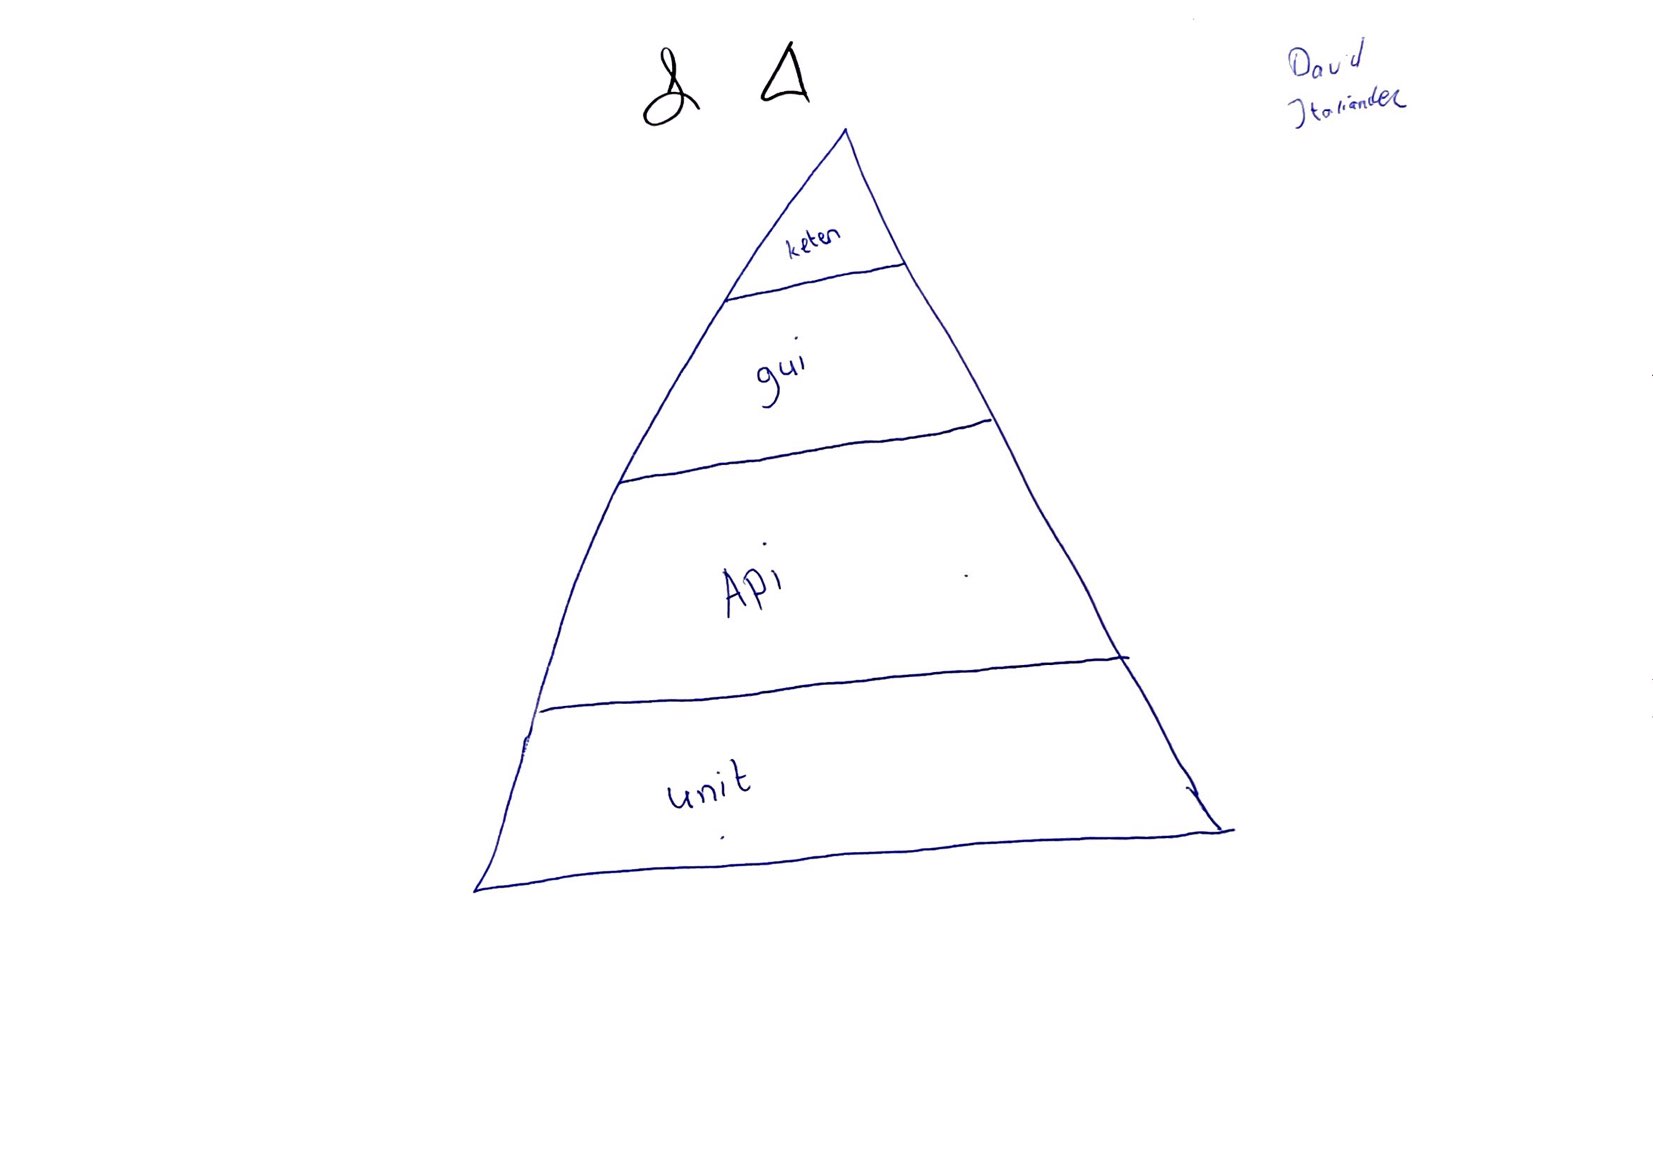 David
Italiander
keten
gui
Api
unit